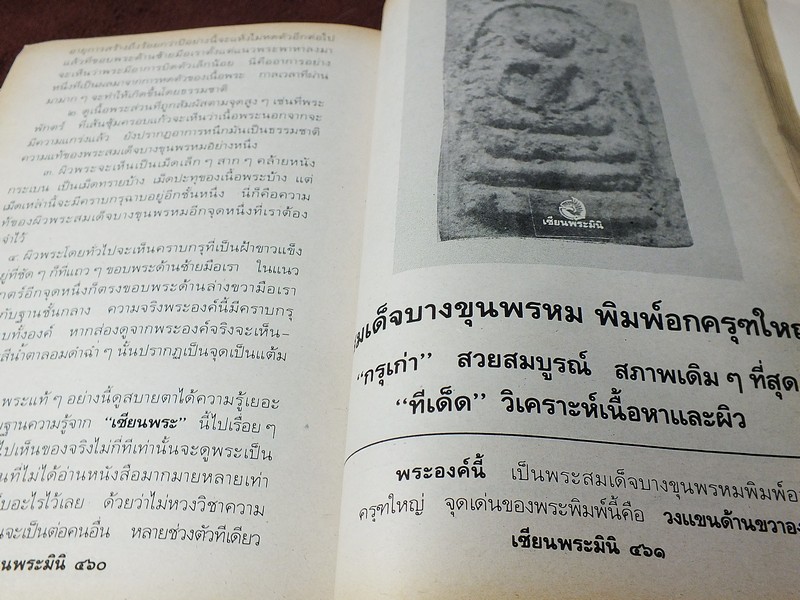 อายุการสร้างถึงร้อยกว่าปีอย่างนี้จะแห้งไม่หดตัวอีกต่อไป
แล้วค้ขอบพระด้านซ้ายมือเราตั้งแต่แนวพระพาหาลงมา
จะเห็นว่าพระมีอาการบิดตัวเล็กน้อย นี่คืออาการอย่าง
หนึ่งที่เป็นผลมาจากการหดตัวของเนื้อพระ กาลเวลาที่ผ่าน
มามาก ๆ จะทำให้เกิดขึ้นโดยธรรมชาติ
๒. ดูเนื้อพระส่วนที่ถูกสัมผัสตามจุดสูง ๆ เช่นที่พระ
พักตร์ ที่เส้นซุ้มครอบแก้วจะเห็นว่าเนื้อพระนอกจากจะ
มีความแกร่งแล้ว ยังปรากฏอาการหนึกมันเป็นธรรมชาติ
ความแท้ของพระสมเด็จบางขุนพรหมอย่างหนึ่ง
๓. ผิวพระจะเห็นเป็นเม็ดเล็ก ๆ สาก ๆ คล้ายหนัง
กระเบน เป็นเม็ดทรายบ้าง เม็ดปะทุของเนื้อพระบ้าง แต่
เม็ดเหล่านี้จะมีคราบกรุฉาบอยู่อีกชั้นหนึ่ง นี่ก็คือความ
ท้ของผิวพระสมเด็จบางขุนพรหมอีกจุดหนึ่งที่เราต้อง
จำไว้
๔. ผิวพระโดยทั่วไปจะเห็นคราบกรุที่เป็นฝ้าขาวแข็ง
ยู่ที่ชัด ๆ ก็ที่แถว ๆ ขอบพระด้านซ้ายมือเรา ในแนว
ตร์อีกจุดหนึ่งก็ตรงขอบพระด้านล่างขวามือเรา
กับฐานชั้นกลาง ความจริงพระองค์นี้มีคราบกรุ
บทั้งองค์ หากส่องดูจากพระองค์จริงจะเห็น–
สีน้ำตาลอมดำฉ่ำ ๆ นั้นปรากฏเป็นจุดเป็นแต้ม
พระแท้ ๆ อย่างนี้ดูสบายตาได้ความรู้เยอะ
ฐานความรู้จาก “เซียนพระ” นี้ไปเรื่อย ๆ
ไปเห็นของจริงไม่กี่ทีเท่านั้นจะดูพระเป็น
นที่ไม่ได้อ่านหนังสือมากมายหลายเท่า
บอะไรไว้เลย ด้วยว่าไม่หวงวิชาความ
นจะเป็นต่อคนอื่น หลายช่วงตัวทีเดียว
นพระมินิ ๔๖๐
เซียนพระมินิ
มเด็จบางขุนพรหม พิมพ์อกครุฑใหญ่
“กรุเก่า” สวยสมบูรณ์ สภาพเดิม ๆ ที่สุด
“ทีเด็ด” วิเคราะห์เนื้อหาและผิว
พระองค์นี้ เป็นพระสมเด็จบางขุนพรหมพิมพ์อ
ครุฑใหญ่ จุดเด่นของพระพิมพ์นี้คือ วงแขนด้านขวาอง
เซียนพระมินิ ๔๖๑